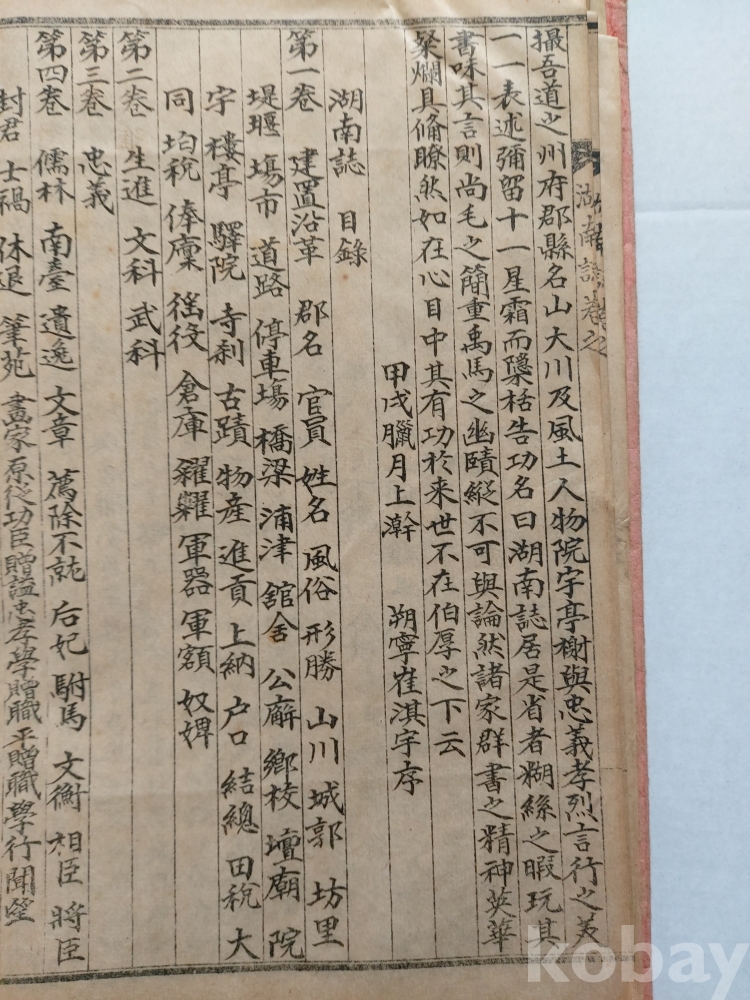 湖南誌卷之
撮吾道之州府郡縣名山大川及風土人物院宇亭榭與忠義孝烈言行之美
一一表述彌留十一星霜而隱括告功名曰湖南誌居是省者糊絲之暇玩其
書味其言則尚毛之簡重禹馬之幽賾縱不可與論然諸家群書之精神英華
粲爛具備瞭然如在心目中其有功於来世不在伯厚之下云
甲戌臘月上澣 朔寧崔淇宇序
湖南誌 目錄
第一卷 建置沿革 郡名 官員 姓名 風俗 形勝 山川 城郭 坊里
堤堰 塲市 道路 停車塲 橋梁 浦津 舘舍 公廨 鄉校 壇廟 院
宇 樓亭 驛院 寺刹 古蹟 物産 進貢 上納 户口 結總 田稅 大
同 均稅 俸廩 徭役 倉庫 糴糶 軍器 軍額 奴婢
第二卷 生進 文科 武科
第三卷 忠義
第四卷 儒林 南臺 遺逸 文章 薦除不就 后妃 駙馬 文衡 相臣 將臣
封君 士禍 休退 筆苑 畫家 原從功臣 贈謚 忠孝學贈職 平贈職 學行 聞望
kobay